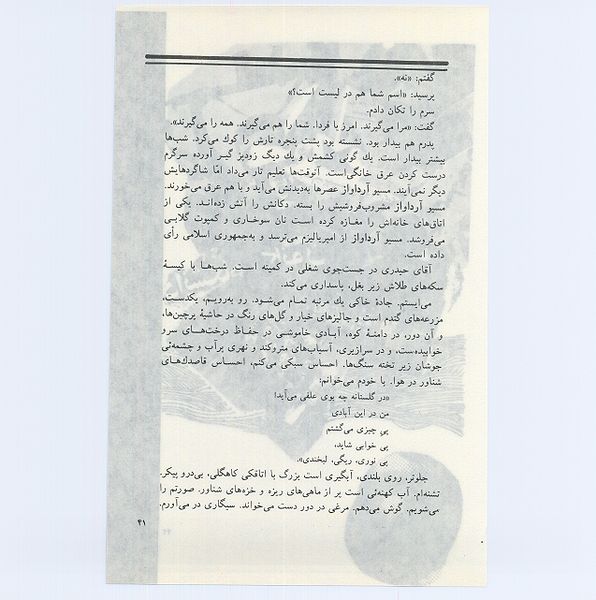 گفتم: «نه».
پرسید: «اسم شما هم در لیست است؟»
سرم را تکان دادم.
گفت: «مرا می‌گیرند. امرز یا فردا. شما را هم می‌گیرند. همه را می‌گیرند».
پدرم هم بیدار بود. نشسته بود پشت پنجره تارش را کوك می‌کرد. شب‌ها
بیشتر بیدار است. یك گونی کشمش و یك دیگ زودپز گیر آورده سرگرم
درست کردن عرق خانگی‌است. آنوقت‌ها تعلیم تار می‌داد امّا شاگردهایش
دیگر نمی‌آیند. مسیو آرداواز عصرها به‌دیدنش می‌آید و با هم عرق می‌خورند.
مسیو آرداواز مشروب‌فروشیش را بسته. دکانش را آتش زده‌اند. یکی از
اتاق‌های خانه‌اش را مغازه کرده است نان سوخاری و کمپوت گلابی
می‌فروشد. مسیو آرداواز از امپریالیزم می‌ترسد و به‌جمهوری اسلامی رأی
داده است.
آقای حیدری در جست‌جوی شغلی در کمیته است. شب‌ها با کیسهٔ
سکه‌های طلاش زیر بغل، پاسداری می‌کند.
می‌ایستم. جادهٔ خاکی یك مرتبه تمام می‌شود. رو به‌رویم، یکدست،
مزرعه‌های گندم است و جالیزهای خیار و گل‌های رنگ در حاشیهٔ پرچین‌ها.
و آن دور، در دامنهٔ کوه، آبادی خاموشی در حفاظ درخت‌های سرو
خوابیده‌ست، و در سرازیری، آسیاب‌های متروکند و نهری پرآب و چشمه‌ئی
جوشان زیر تخته سنگ‌ها. احساس سبکی می‌کنم، احساس قاصدك‌های
شناور در هوا. با خودم می‌خوانم:
«در گلستانه چه بوی علفی می‌آید!
من در این آبادی
پی چیزی می‌گشتم
پی خوابی شاید،
پی نوری، ریگی، لبخندی».
جلوتر، روی بلندی، آبگیری است بزرگ با اتاقکی کاهگلی، بی‌درو پیکر.
تشنه‌ام. آب کهنه‌ئی است پر از ماهی‌های ریزه و خزه‌های شناور. صورتم را
می‌شویم. گوش می‌دهم. مرغی در دور دست می‌خواند. سیگاری در می‌آورم.
۴۱